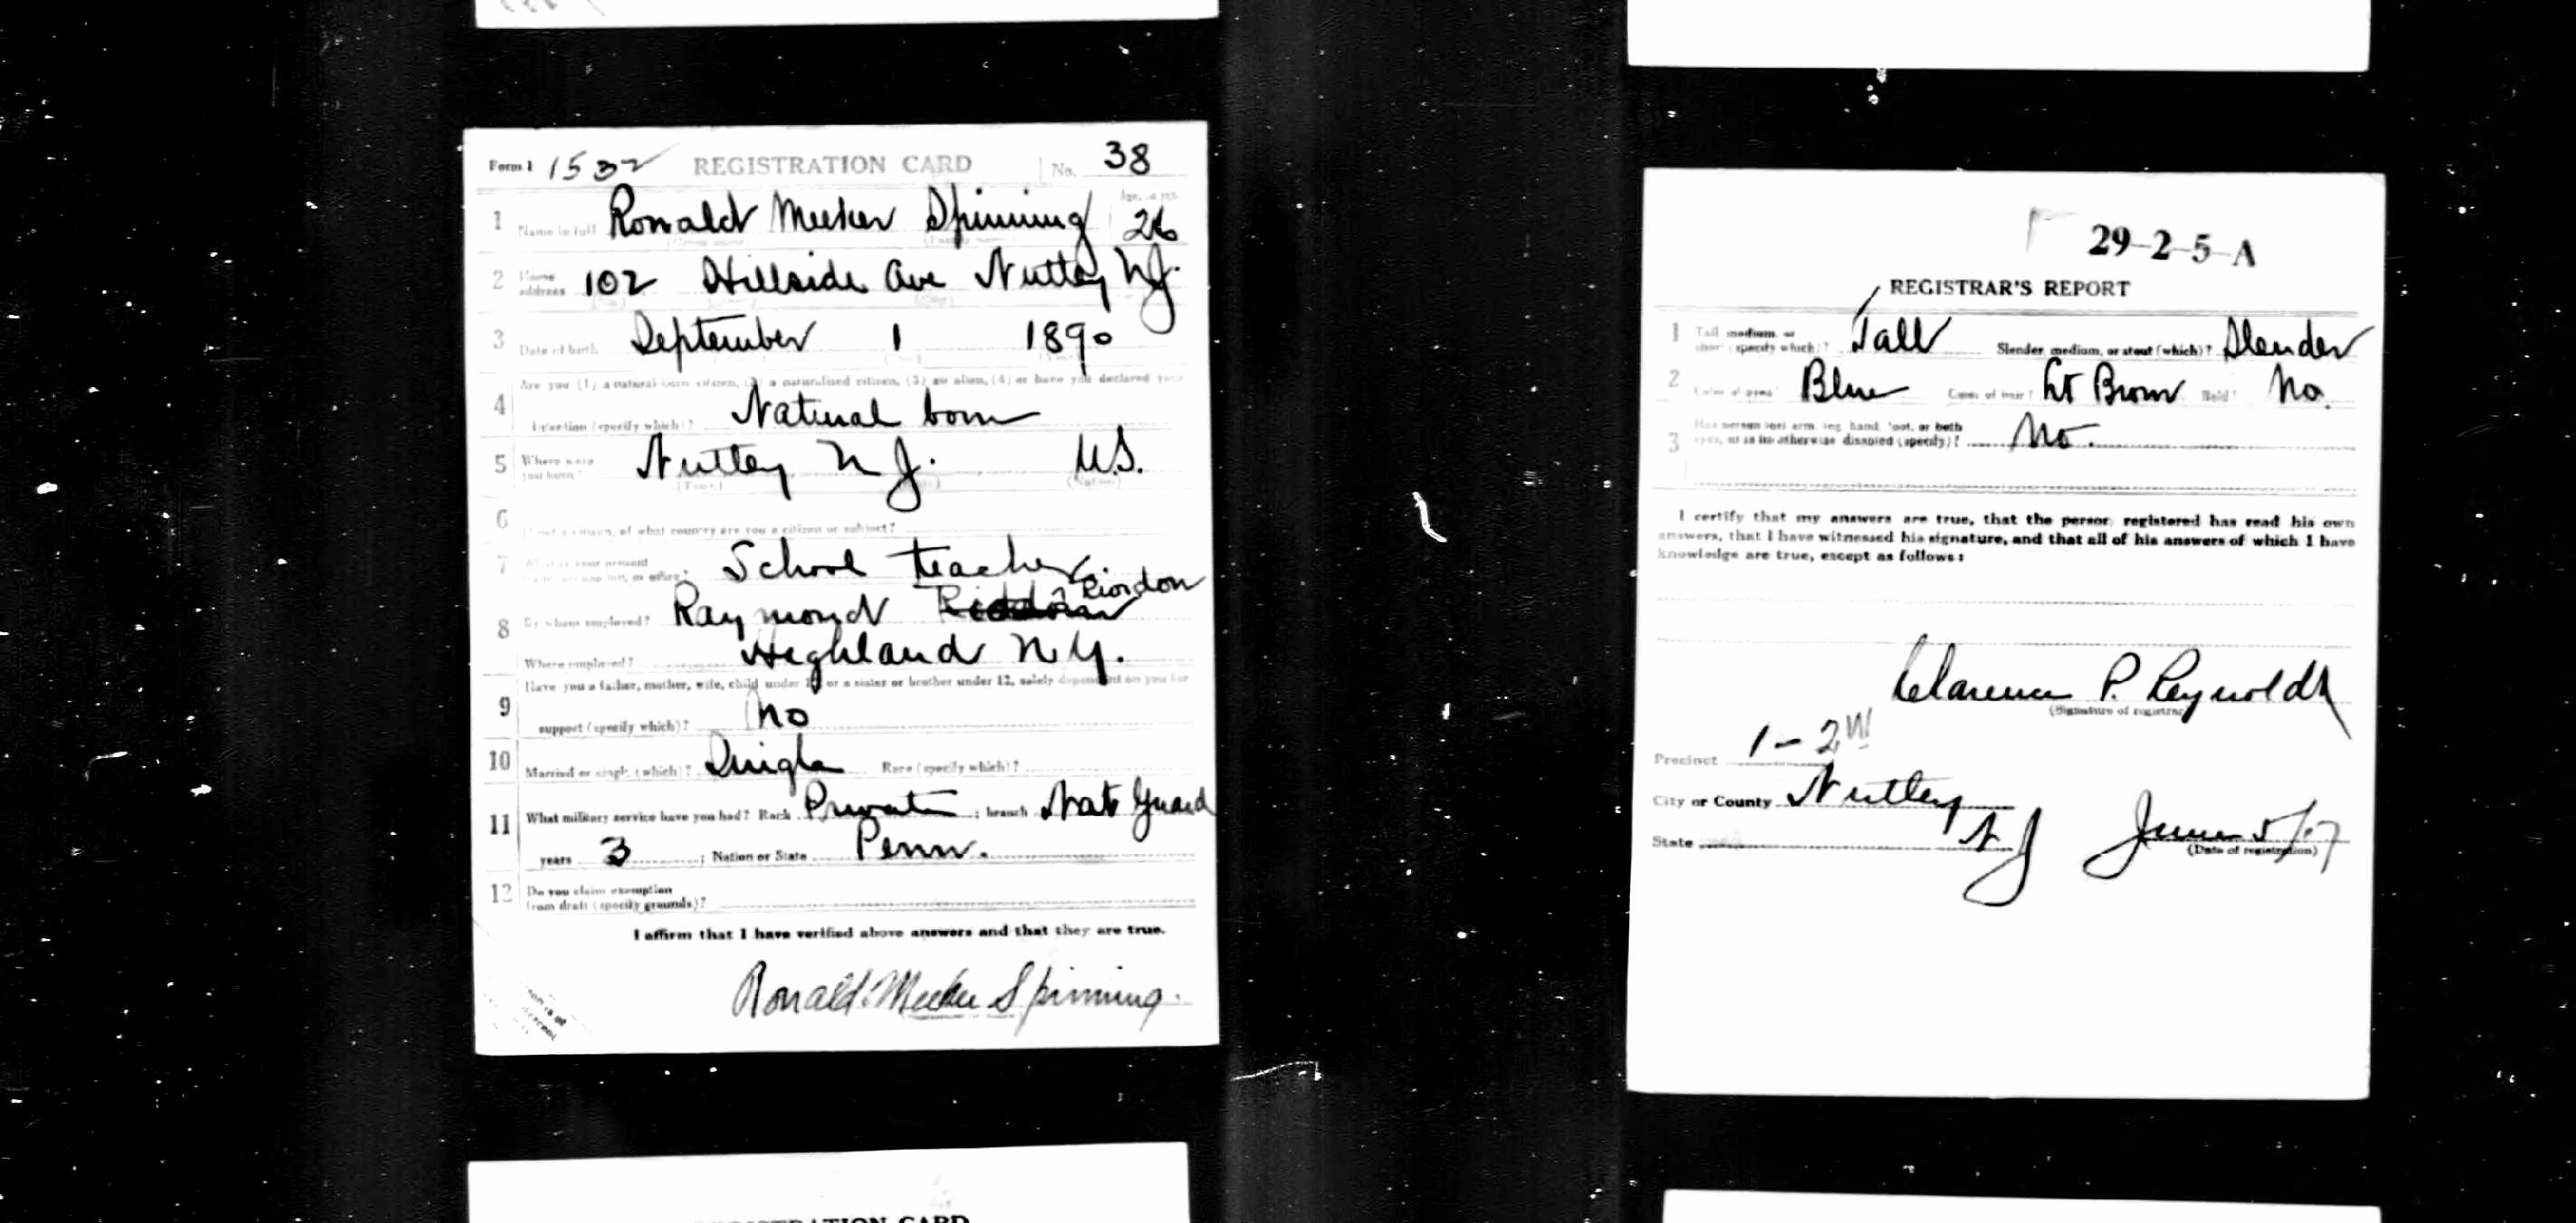 Form 1 1532 REGISTRATION CARD No. 38
1 Name in full Ronald Meeker Spinning 26
2 Home address 102 Hillside Ave Nutley N.J.
3 Date of birth September 1 1890
Are you (1) a natural-born citizen, (2) a naturalized citizen, (3) an alien, (4) or have you declared your
4 intention (specify which)? Natural born
5 Where were you born? Nutley N.J. U.S.
(Town) (Nation)
6 If not a citizen, of what country are you a citizen or subject?
7 What is your present
trade, occupation, or office? School teacher
8 By whom employed? Raymond Riordon
Where employed? Highland N.Y.
Have you a father, mother, wife, child under 12, or a sister or brother under 12, solely dependent on you for
9 support (specify which)? No
10 Married or single (which)? Single Race (specify which)?
11 What military service have you had? Rank Private ; branch Nat Guard
years 3 ; Nation or State Penn.
12 Do you claim exemption
from draft (specify grounds)?
I affirm that I have verified above answers and that they are true.
Ronald Meeker Spinning.
REGISTRATION CARD
29-2-5-A
REGISTRAR'S REPORT
1 Tall, medium, or
short (specify which)? Tall Slender, medium, or stout (which)? Slender
2 Color of eyes? Blue Color of hair? Lt Brown Bald? No.
3 Has person lost arm, leg, hand, foot, or both
eyes, or is he otherwise disabled (specify)? No.
I certify that my answers are true, that the person registered has read his own
answers, that I have witnessed his signature, and that all of his answers of which I have
knowledge are true, except as follows:
Clarence P. Reynolds
(Signature of registrar)
Precinct 1-2W
City or County Nutley
State N J June 5/17
(Date of registration)